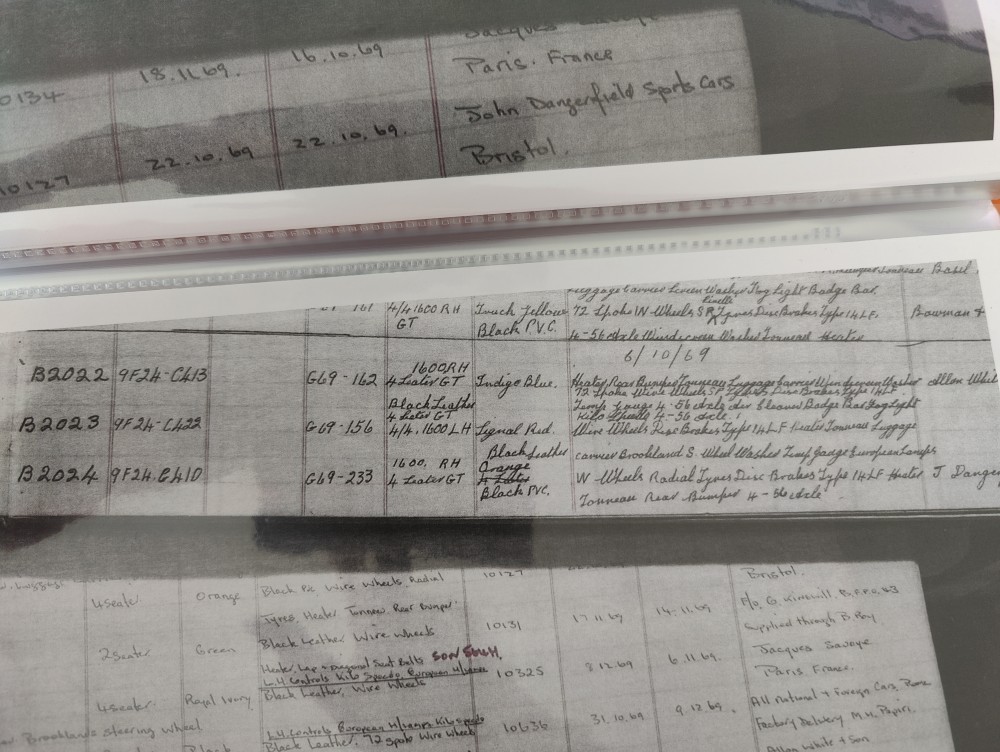 Jacques Savoye
0134 18.11.69. 16.10.69 Paris. France
John Dangerfield Sports Cars
10127 22.10.69 22.10.69. Bristol.
Tonneau Basel.
Luggage Carrier Screen Washer Fog Light Badge Bar.
161 4/4 1600 RH Truck Yellow 72 Spoke W-Wheels SR Tyres Disc Brakes Type 14LF Bowman +
GT Black P.V.C. 4-56 Axle Windscreen Washer Tonneau Heater
6/10/69
1600 RH
B2022 9F24-C413 G69-162 4 Seater GT Indigo Blue. Heater Rear Bumper Tonneau Luggage Carrier Windscreen Washer
72 Spoke Wire Wheels SR Tyres Disc Brakes Type 14LF
Black Leather Temp Gauge 4-56 Axle Badge Bar Fog Light
4 Seater GT Wheels 4-56 Axle
B2023 9F24-C422 G69-156 4/4. 1600 LH Signal Red. Wire Wheels Disc Brakes Type 14LF Heater Tonneau Luggage
Black Leather carrier Brookland S. Wheel Washer Temp Gauge European Lamps
1600. RH Orange
B2024 9F24.C410 G69-233 4 Seater GT 4 Seater W-Wheels Radial Tyres Disc Brakes Type 14LF Heater J Dange
Black PVC. Tonneau Rear Bumper 4-56 Axle
4 Seater Orange Black Pvc Wire Wheels Radial 10127 Bristol.
Tyres, Heater Tonneau, Rear Bumper. F/O. G. B.F.P.O. 83
2 Seater Green Black Leather Wire Wheels 10131 17.11.69 14.11.69 Supplied through B. Roy
Heater Lap + Diagonal Seat Belts Jacques Savoye
L.H. Controls Kilo Speedo, European H/lamps
4 Seater Royal Ivory Black Leather, Wire Wheels 10325 8.12.69 6.11.69. Paris. France.
Brooklands steering wheel L.H. Controls European H/lamps Kilo Speedo All National + Foreign Cars, Rome
Black Black Leather, 72 spoke Wire Wheels 10636 31.10.69 9.12.69. Factory Delivery M.H.
Allan White + Son